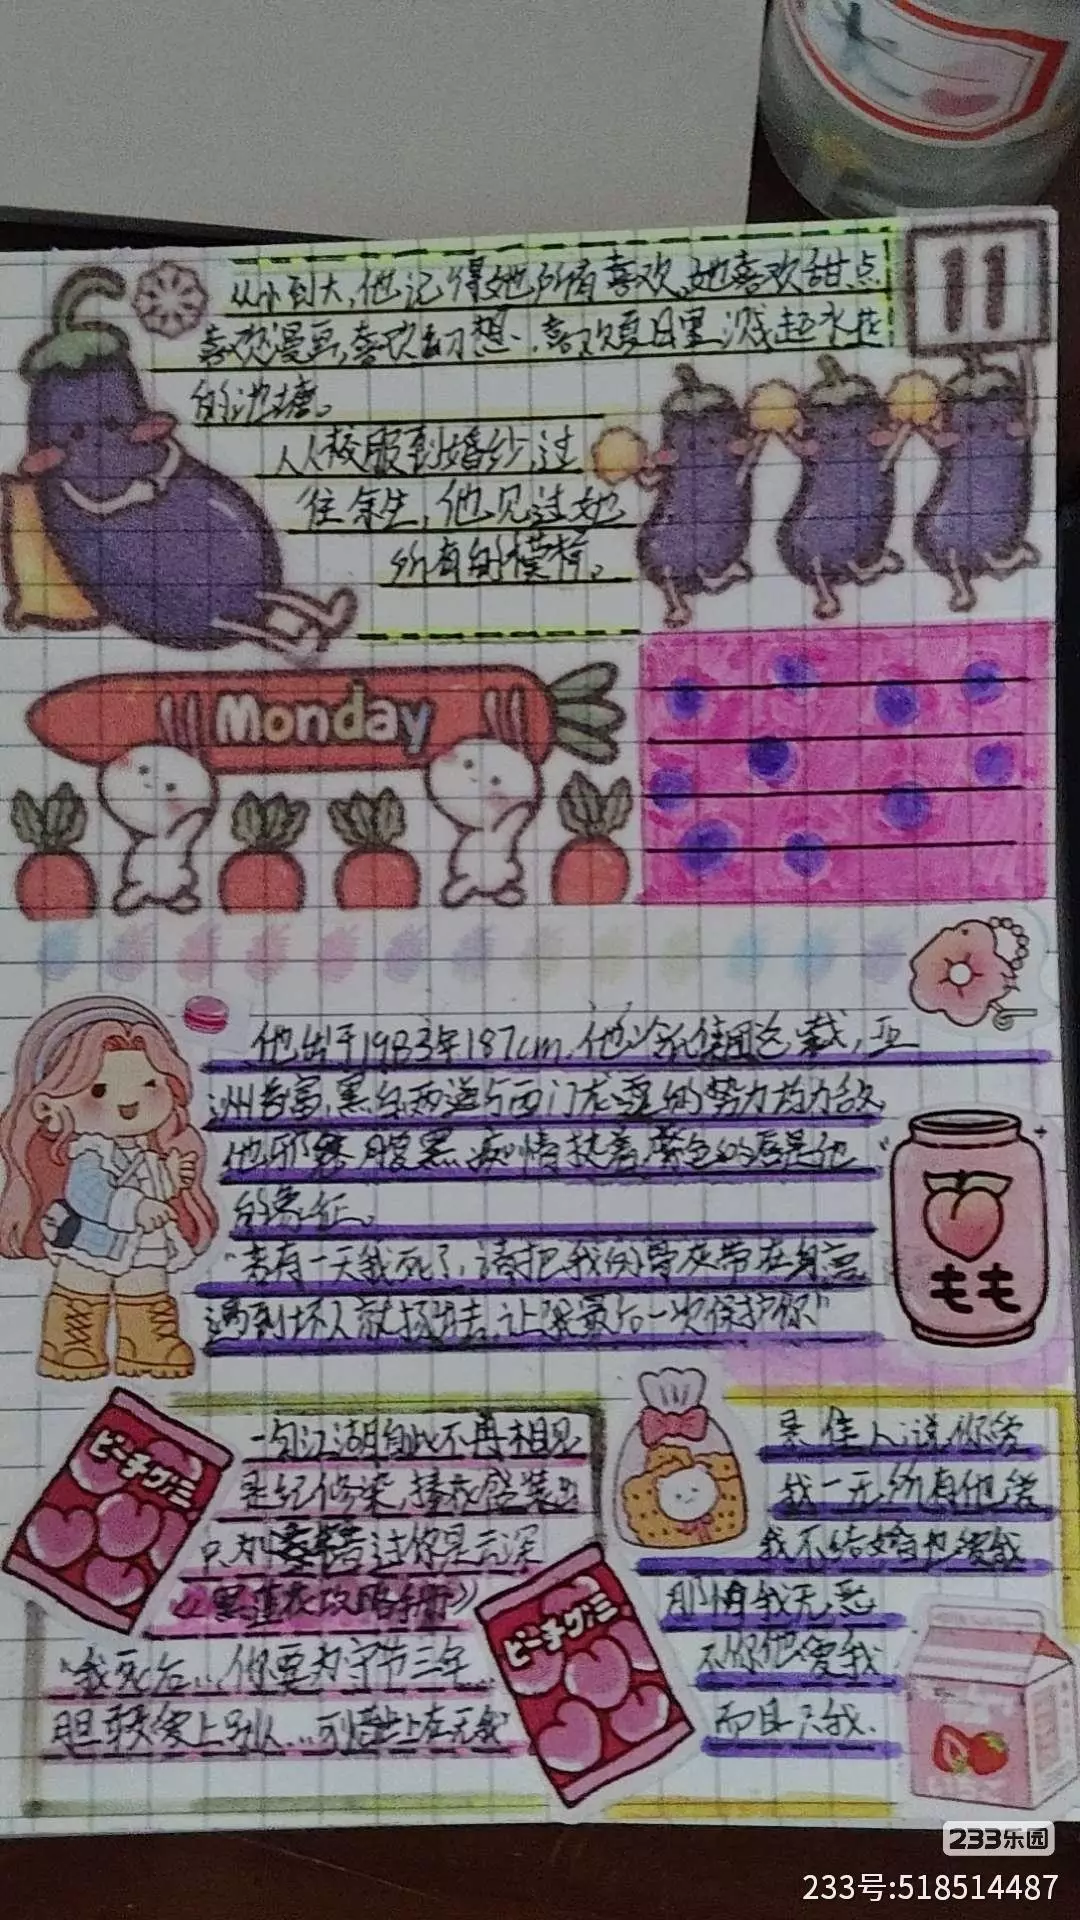 11
从小到大,他记得她所有喜欢,她喜欢甜点
喜欢漫画,喜欢幻想、喜欢夏日里溅起水花
的池塘。
从校服到婚纱,过
往余生,他见过她
所有的模样。
Monday
他出于1983年187cm,他冷氏集团总裁,亚
洲首富,黑白两道与西门龙霆的势力均力敌
他邪 腹黑,痴情执着,紫色的唇是他
的象征。
“若有一天我死了,请把我的骨灰带在身旁
遇到坏人就扬出去,让我最后一次保护你”
もも
ピーチグミ
一句江湖自此不再相见
是红 染,接衣盛装出
只为 告过你是云深
《黑莲花攻略手册》
“我死后...你要为守节三年
胆敢爱上别人...
ピーチグミ
是佳人说你爱
我一无所有他爱
我不结婚他爱我
那怕我无恙
不你他爱我
而且只我.
いちご
233乐园
233号:518514487